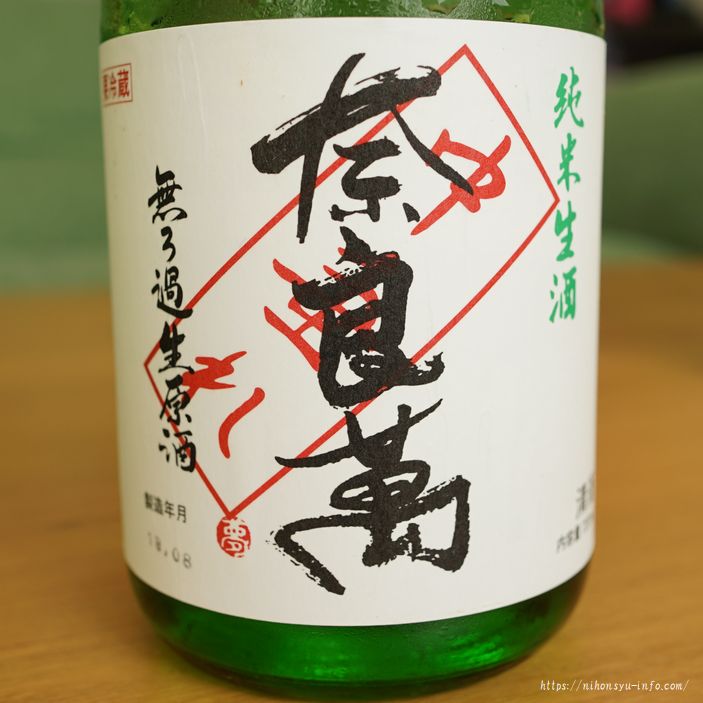 純米生酒
奈良萬
中垂れ
無ろ過生原酒
要冷蔵
製造年月
18.08
夢
内容量
https://nihonsyu-info.com/